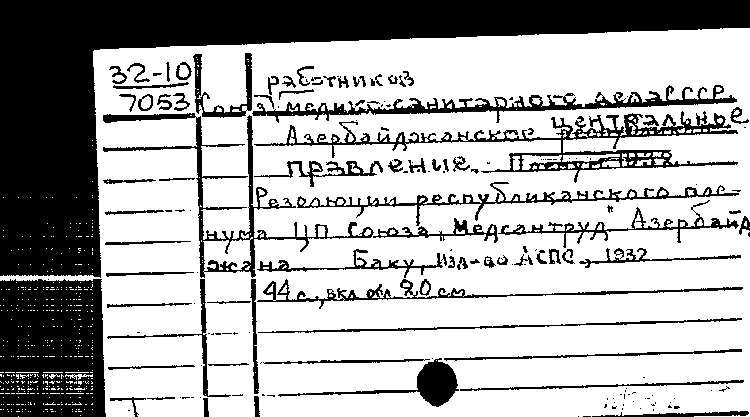 32-10
работников
7053 Союз медико-санитарного дела СССР.
центральное
Азербайджанское
правление. Пленум. 1932.
Резолюции республиканского пле-
нума ЦП Союза „Медсантруд" Азербайд
жана. Баку, Изд-во АСПС, 1932
44 с., вкл. обл. 20 см